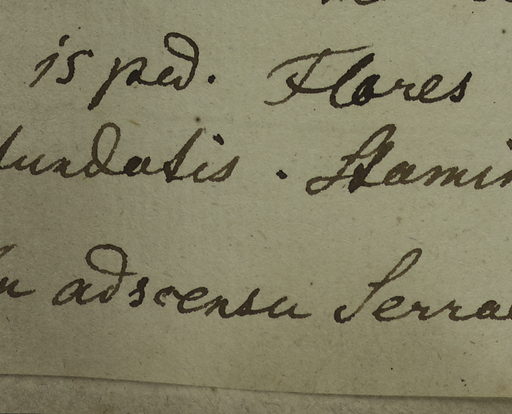 15 ped. Flores
undatis. Stamin
adscensu Serrae